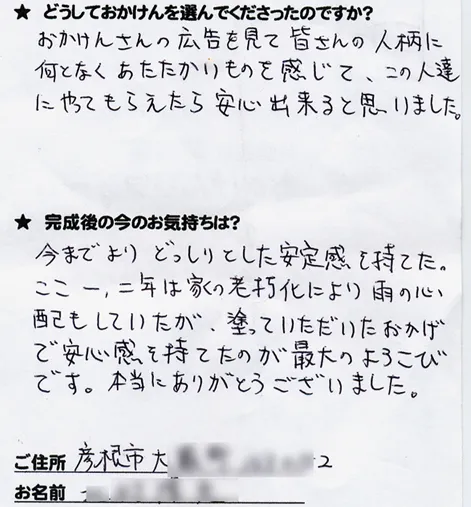 ★ どうしておかけんを選んでくださったのですか?
おかけんさんの広告を見て皆さんの人柄に
何となくあたたかいものを感じて、この人達
にやってもらえたら安心出来ると思いました。
★ 完成後の今のお気持ちは?
今までよりどっしりとした安定感を持てた。
ここ一、二年は家の老朽化により雨の心
配もしていたが、塗っていただいたおかげ
で安心感を持てたのが最大のよろこび
です。本当にありがとうございました。
ご住所 彦根市大 2
お名前